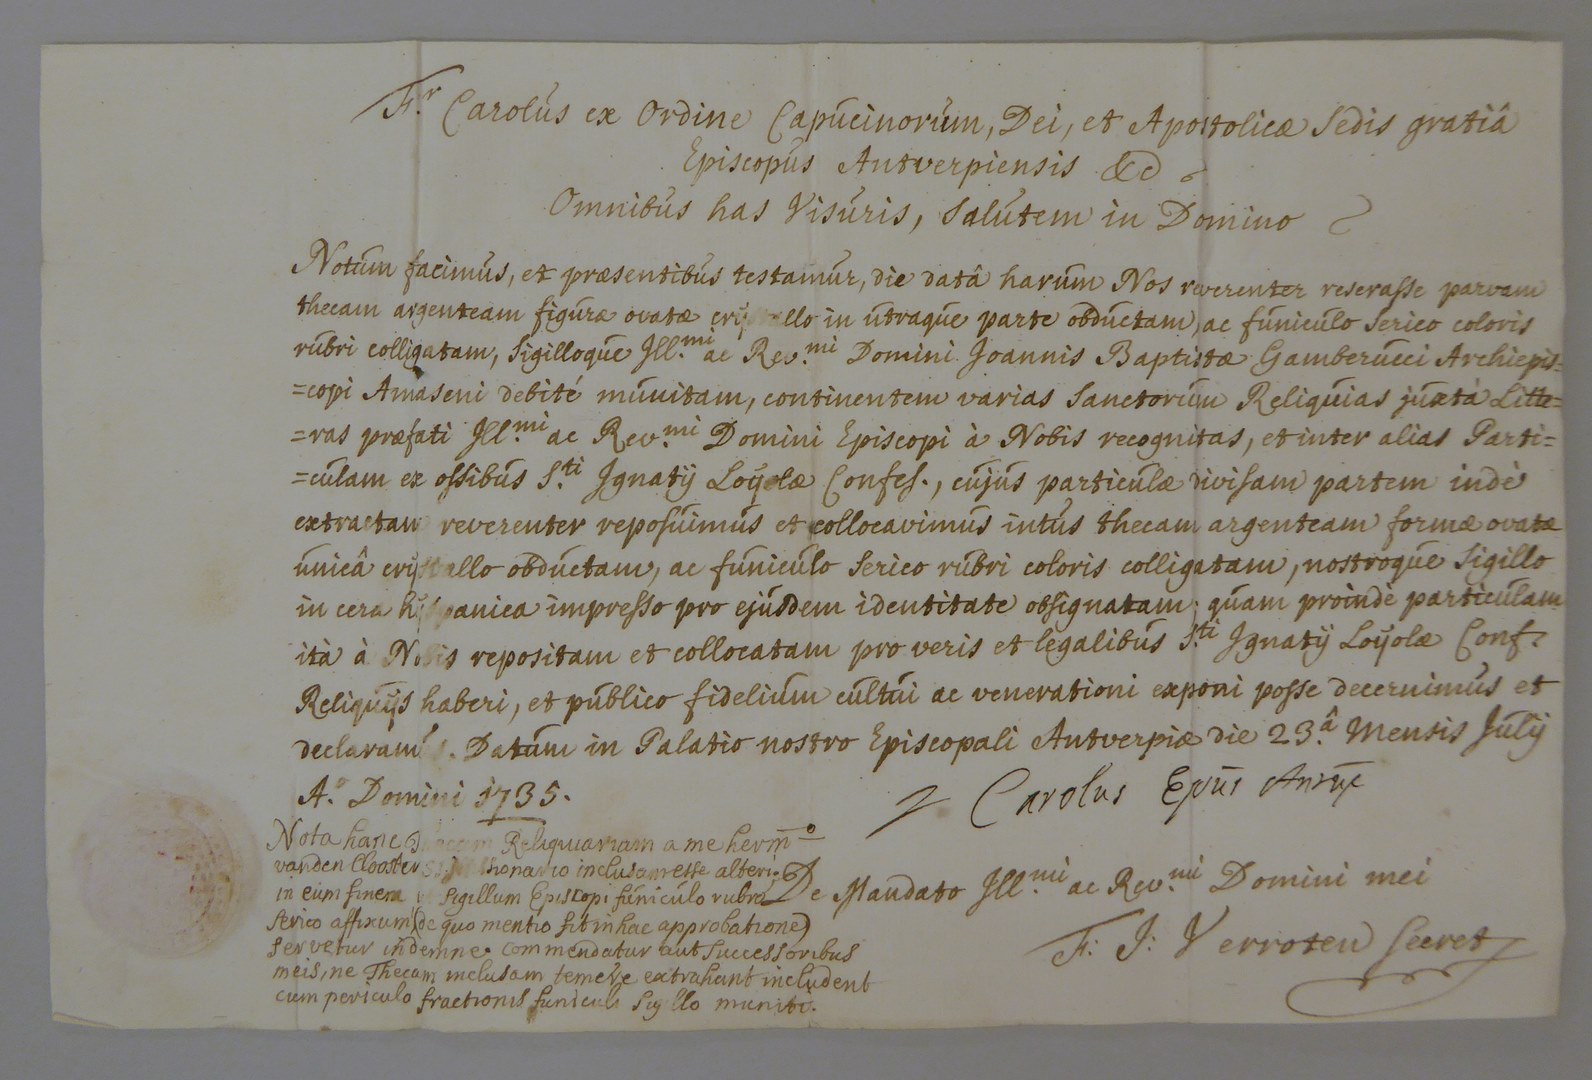 F.r Carolus ex Ordine Capucinorum, Dei, et Apostolicæ Sedis gratiâ
Episcopus Antverpiensis &c
Omnibus has Visuris, Salutem in Domino
Notum facimus, et præsentibus testamur, die datâ harum Nos reverenter reserasse parvam
thecam argenteam figuræ ovatæ crystallo in utraque parte obductam, ac funiculo serico coloris
rubri colligatam, Sigilloque Ill.mi ac Rev.mi Domini Joannis Baptistæ Gamberucci Archiepis=
=copi Amaseni debité munitam, continentem varias Sanctorum Reliquias juxtà Litte=
=ras præfati Ill.mi ac Rev.mi Domini Episcopi à Nobis recognitas, et inter alias Parti=
=culam ex ossibus S.ti Ignatij Loyolæ Confes., cujus particulæ divisam partem indè
extractam reverenter reposuimus et collocavimus intùs thecam argenteam formæ ovatæ
unicâ crystallo obductam, ac funiculo serico rubri coloris colligatam, nostroque Sigillo
in cera hispanica impresso pro ejusdem identitate obsignatam; quam proindè particulam
ità à Nobis repositam et collocatam pro veris et legalibus S.ti Ignatij Loyolæ Conf.
Reliquijs haberi, et publico fidelium cultui ac venerationi exponi posse decernimus et
declaramus. Datum in Palatio nostro Episcopali Antverpiæ die 23.â Mensis Julij
A.o Domini 1735.
Carolus Epūs Antūe
De Mandato Ill.mi ac Rev.mi Domini mei
F: J: Verroten Secret
Nota hanc Reliquiariam a me herm̄o
vanden Clooster inclusam esse alteri,
in eum finem Sigillum Episcopi funiculo rubro
serico affixum (de quo mentio fit in hac approbatione)
servetur indemne. commendatur aut Successoribus
meis, ne Thecam inclusam temere extrahant includent
cum periculo fractionis funiculi Sigillo muniti.